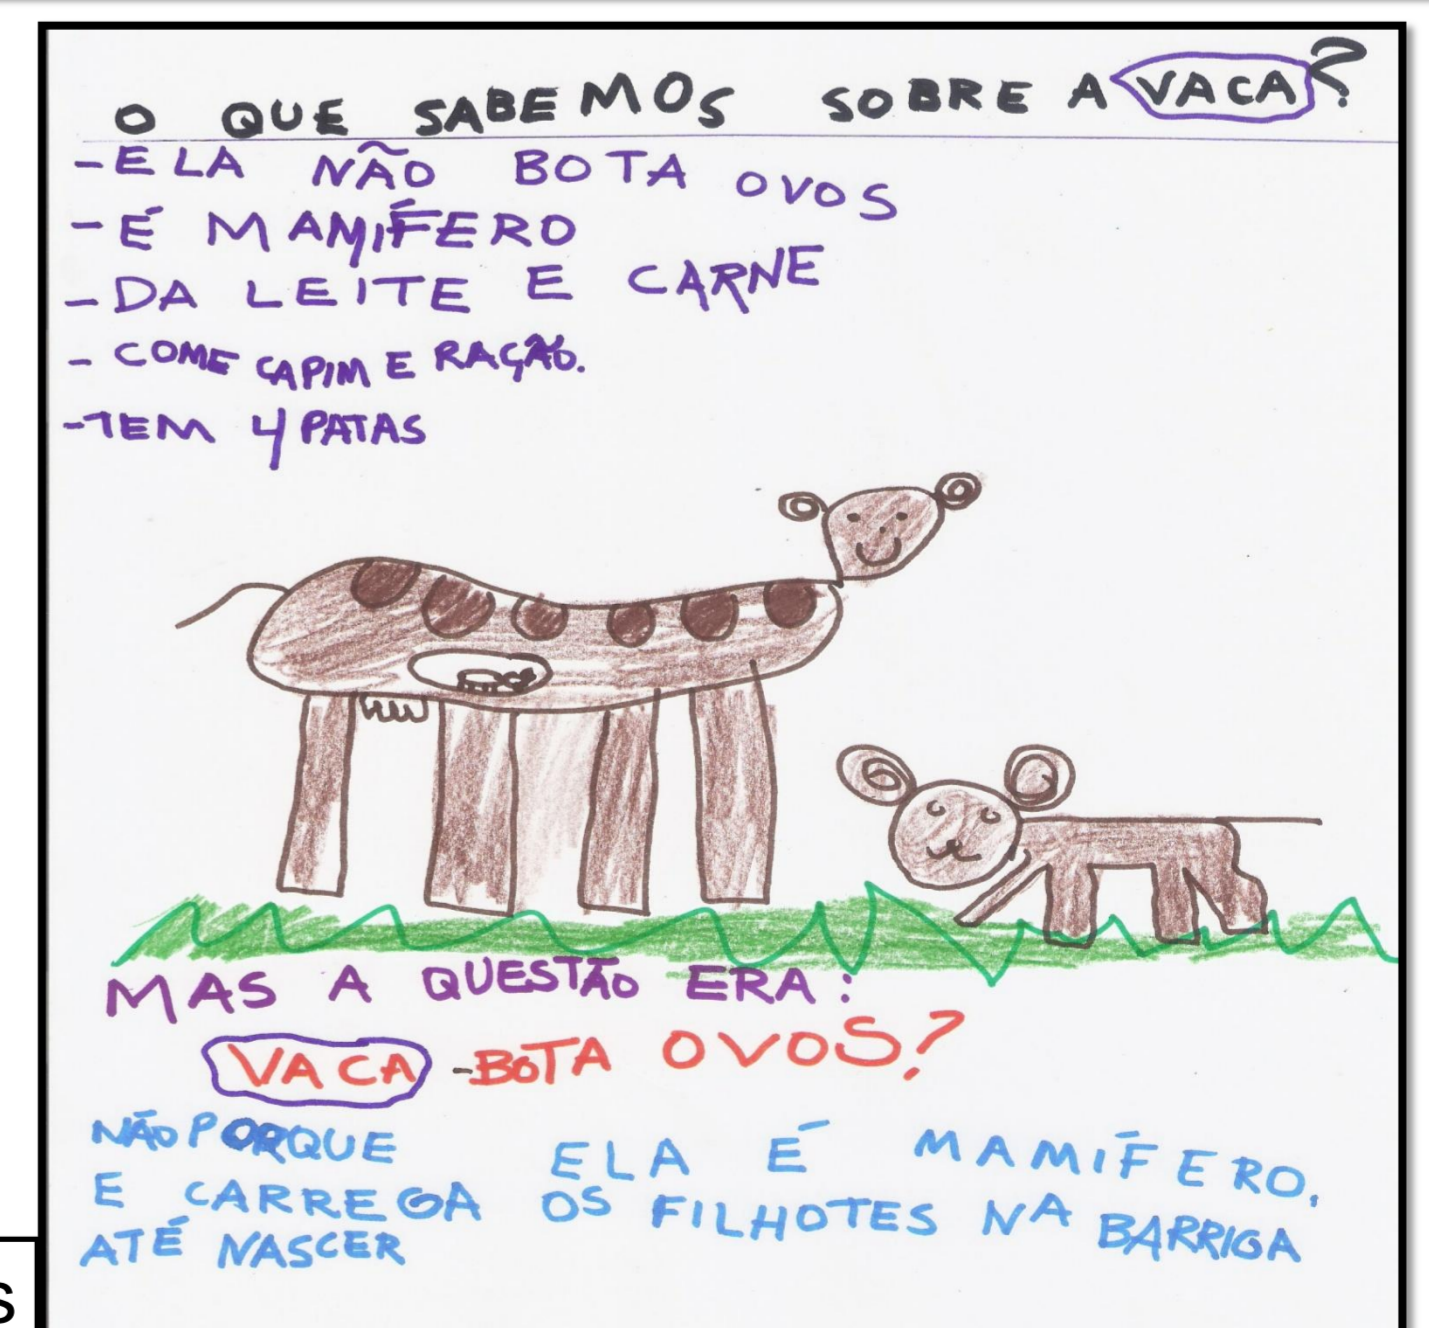 O QUE SABEMOS SOBRE A VACA?
- ELA NÃO BOTA OVOS
- É MAMÍFERO
- DA LEITE E CARNE
- COME CAPIM E RAÇÃO.
- TEM 4 PATAS
MAS A QUESTÃO ERA:
VACA - BOTA OVOS?
NÃO PORQUE ELA É MAMÍFERO,
E CARREGA OS FILHOTES NA BARRIGA
ATÉ NASCER
S